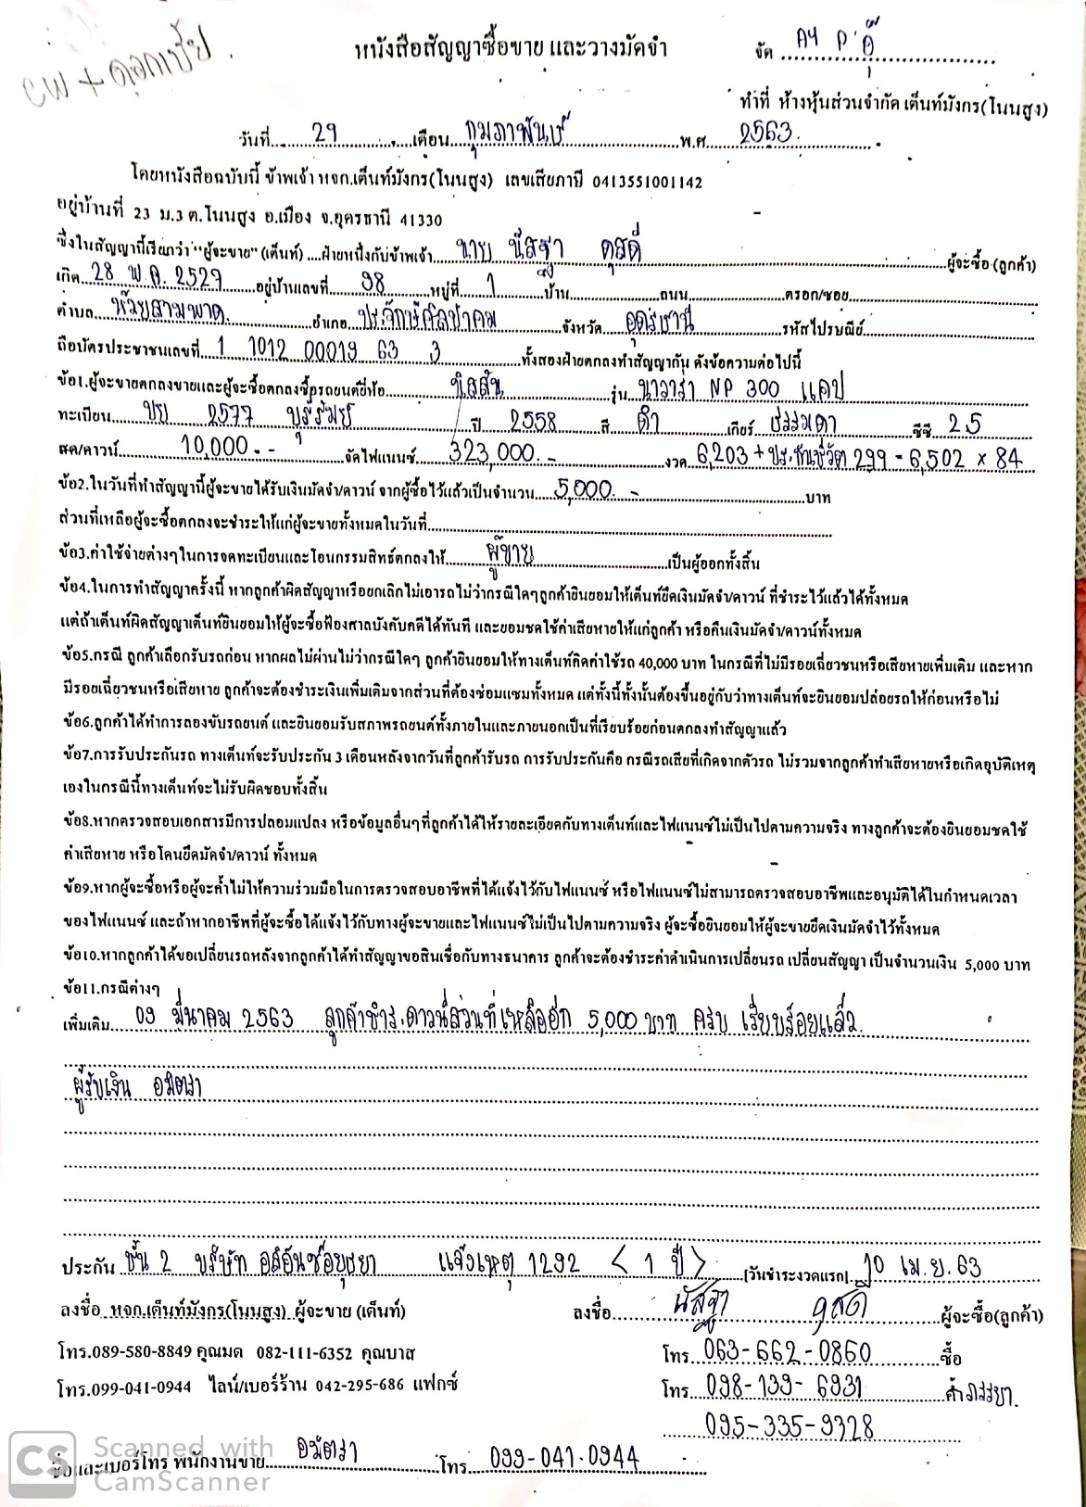 CW + ดอกเบี้ย
หนังสือสัญญาซื้อขาย และวางมัดจำ
จัด AY P'อุ๊
ทำที่ ห้างหุ้นส่วนจำกัด เต็นท์มังกร(โนนสูง)
วันที่ 29 เดือน กุมภาพันธ์ พ.ศ 2563.
โดยหนังสือฉบับนี้ ข้าพเจ้า หจก.เต็นท์มังกร(โนนสูง) เลขเสียภาษี 0413551001142
อยู่บ้านที่ 23 ม.3 ต.โนนสูง อ.เมือง จ.อุดรธานี 41330
ซึ่งในสัญญานี้เรียกว่า "ผู้จะขาย" (เต็นท์) ....ฝ่ายหนึ่งกับข้าพเจ้า นาย นัสฐา ดุสดี ผู้จะซื้อ (ลูกค้า)
เกิด 28 พ.ค. 2527 อยู่บ้านเลขที่ 98 หมู่ที่ 1 บ้าน ถนน ตรอก/ซอย
ตำบล ห้วยสามพาด อำเภอ ประจักษ์ศิลปาคม จังหวัด อุดรธานี รหัสไปรษณีย์
ถือบัตรประชาชนเลขที่ 1 1012 00019 63 3 ทั้งสองฝ่ายตกลงทำสัญญากัน ดังข้อความต่อไปนี้
ข้อ1.ผู้จะขายตกลงขายและผู้จะซื้อตกลงซื้อรถยนต์ยี่ห้อ นิสสัน รุ่น นาวาร่า NP 300 แคป
ทะเบียน บย 2577 บุรีรัมย์ ปี 2558 สี ดำ เกียร์ ธรรมดา ซีซี 2.5
สด/ดาวน์ 10,000.- จัดไฟแนนซ์ 323,000.- งวด 6,203 + ประกันชีวิต 299 = 6,502 x 84
ข้อ2.ในวันที่ทำสัญญานี้ผู้จะขายได้รับเงินมัดจำ/ดาวน์ จากผู้ซื้อไว้แล้วเป็นจำนวน 5,000.- บาท
ส่วนที่เหลือผู้จะซื้อตกลงจะชำระให้แก่ผู้จะขายทั้งหมดในวันที่
ข้อ3.ค่าใช้จ่ายต่างๆในการจดทะเบียนและโอนกรรมสิทธ์ตกลงให้ ผู้ขาย เป็นผู้ออกทั้งสิ้น
ข้อ4.ในการทำสัญญาครั้งนี้ หากลูกค้าผิดสัญญาหรือยกเลิกไม่เอารถไม่ว่ากรณีใดๆลูกค้ายินยอมให้เต็นท์ยึดเงินมัดจำ/ดาวน์ ที่ชำระไว้แล้วได้ทั้งหมด
แต่ถ้าเต็นท์ผิดสัญญาเต็นท์ยินยอมให้ผู้จะซื้อฟ้องศาลบังคับคดีได้ทันที และยอมชดใช้ค่าเสียหายให้แก่ลูกค้า หรือคืนเงินมัดจำ/ดาวน์ทั้งหมด
ข้อ5.กรณี ลูกค้าเลือกรับรถก่อน หากผลไม่ผ่านไม่ว่ากรณีใดๆ ลูกค้ายินยอมให้ทางเต็นท์คิดค่าใช้รถ 40,000 บาท ในกรณีที่ไม่มีรอยเฉี่ยวชนหรือเสียหายเพิ่มเติม และหาก
มีรอยเฉี่ยวชนหรือเสียหาย ลูกค้าจะต้องชำระเงินเพิ่มเติมจากส่วนที่ต้องซ่อมแซมทั้งหมด แต่ทั้งนี้ทั้งนั้นต้องขึ้นอยู่กับว่าทางเต็นท์จะยินยอมปล่อยรถให้ก่อนหรือไม่
ข้อ6.ลูกค้าได้ทำการลองขับรถยนต์ และยินยอมรับสภาพรถยนต์ทั้งภายในและภายนอกเป็นที่เรียบร้อยก่อนตกลงทำสัญญาแล้ว
ข้อ7.การรับประกันรถ ทางเต็นท์จะรับประกัน 3 เดือนหลังจากวันที่ลูกค้ารับรถ การรับประกันคือ กรณีรถเสียที่เกิดจากตัวรถ ไม่รวมจากลูกค้าทำเสียหายหรือเกิดอุบัติเหตุ
เองในกรณีนี้ทางเต็นท์จะไม่รับผิดชอบทั้งสิ้น
ข้อ8.หากตรวจสอบเอกสารมีการปลอมแปลง หรือข้อมูลอื่นๆที่ลูกค้าได้ให้รายละเอียดกับทางเต็นท์และไฟแนนซ์ไม่เป็นไปตามความจริง ทางลูกค้าจะต้องยินยอมชดใช้
ค่าเสียหาย หรือโดนยึดมัดจำ/ดาวน์ ทั้งหมด
ข้อ9.หากผู้จะซื้อหรือผู้จะค้ำไม่ให้ความร่วมมือในการตรวจสอบอาชีพที่ได้แจ้งไว้กับไฟแนนซ์ หรือไฟแนนซ์ไม่สามารถตรวจสอบอาชีพและอนุมัติได้ในกำหนดเวลา
ของไฟแนนซ์ และถ้าหากอาชีพที่ผู้จะซื้อได้แจ้งไว้กับทางผู้จะขายและไฟแนนซ์ไม่เป็นไปตามความจริง ผู้จะซื้อยินยอมให้ผู้จะขายยึดเงินมัดจำไว้ทั้งหมด
ข้อ10.หากลูกค้าได้ขอเปลี่ยนรถหลังจากลูกค้าได้ทำสัญญาขอสินเชื่อกับทางธนาคาร ลูกค้าจะต้องชำระค่าดำเนินการเปลี่ยนรถ เปลี่ยนสัญญา เป็นจำนวนเงิน 5,000 บาท
ข้อ11.กรณีต่างๆ
เพิ่มเติม 09 มีนาคม 2563 ลูกค้าชำระดาวน์ส่วนที่เหลืออีก 5,000 บาท ครบ เรียบร้อยแล้ว
ผู้รับเงิน อมิตรา
ประกัน ชั้น 2 บริษัท อลิอันซ์อยุธยา แจ้งเหตุ 1292 < 1 ปี > (วันชำระงวดแรก) 10 เม.ย. 63
ลงชื่อ หจก.เต็นท์มังกร(โนนสูง) ผู้จะขาย (เต็นท์) ลงชื่อ นัสฐา ดุสดี ผู้จะซื้อ(ลูกค้า)
โทร.089-580-8849 คุณมด 082-111-6352 คุณบาส โทร 063-662-0860 ซื้อ
โทร.099-041-0944 ไลน์/เบอร์ร้าน 042-295-686 แฟกซ์ โทร 098-139-6931 ค้ำ ภรรยา.
095-335-9328
ชื่อและเบอร์โทร พนักงานขาย อมิตรา โทร 099-041-0944
CS Scanned with
CamScanner